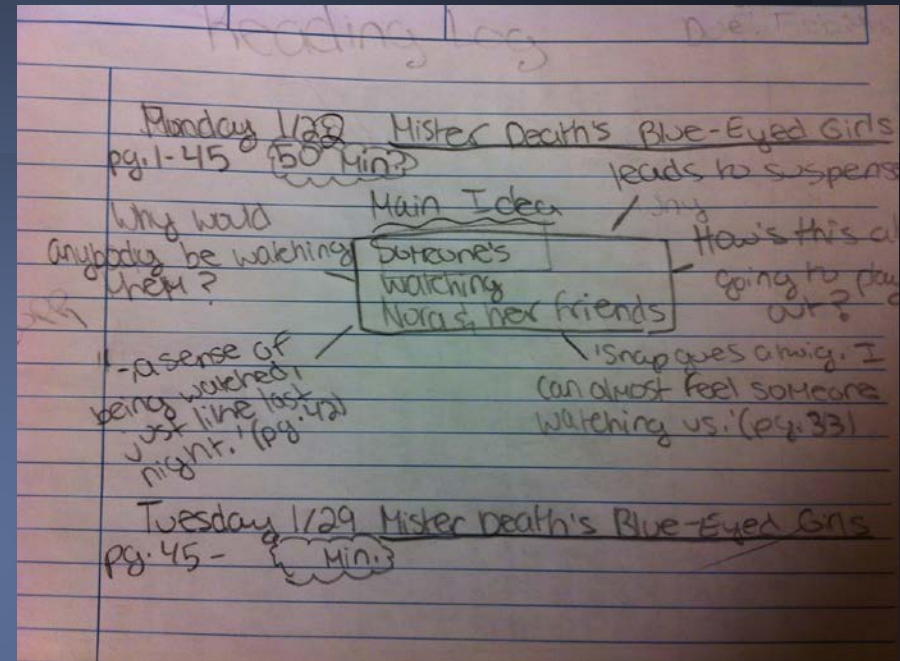 Reading Log
Monday 1/28 Mister Death's Blue-Eyed Girls
pg. 1-45 50 Min.
leads to suspens
Main Idea
Why would
anybody be watching
them?
Someone's
watching
Nora & her friends
How's this al
going to play
out?
"-a sense of
being watched,
just like last
night." (pg. 42)
'Snap goes a twig. I
can almost feel someone
watching us.' (pg. 33)
Tuesday 1/29 Mister Death's Blue-Eyed Girls
pg. 45- Min.